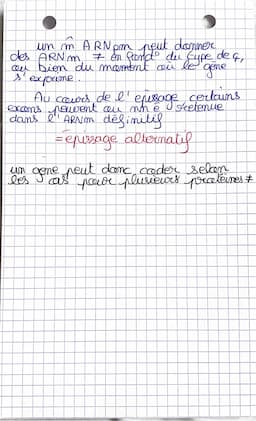 un m̂ ARNpm peut donner
des ARNm ≠ en fonct° du type de ¢,
ou bien du moment où le gène
s'exprime.
Au cours de l'épissage certains
exons peuvent ou non ê retenue
dans l'ARNm définitif
= épissage alternatif
un gène peut donc coder selon
les cas pour plusieurs protéines ≠